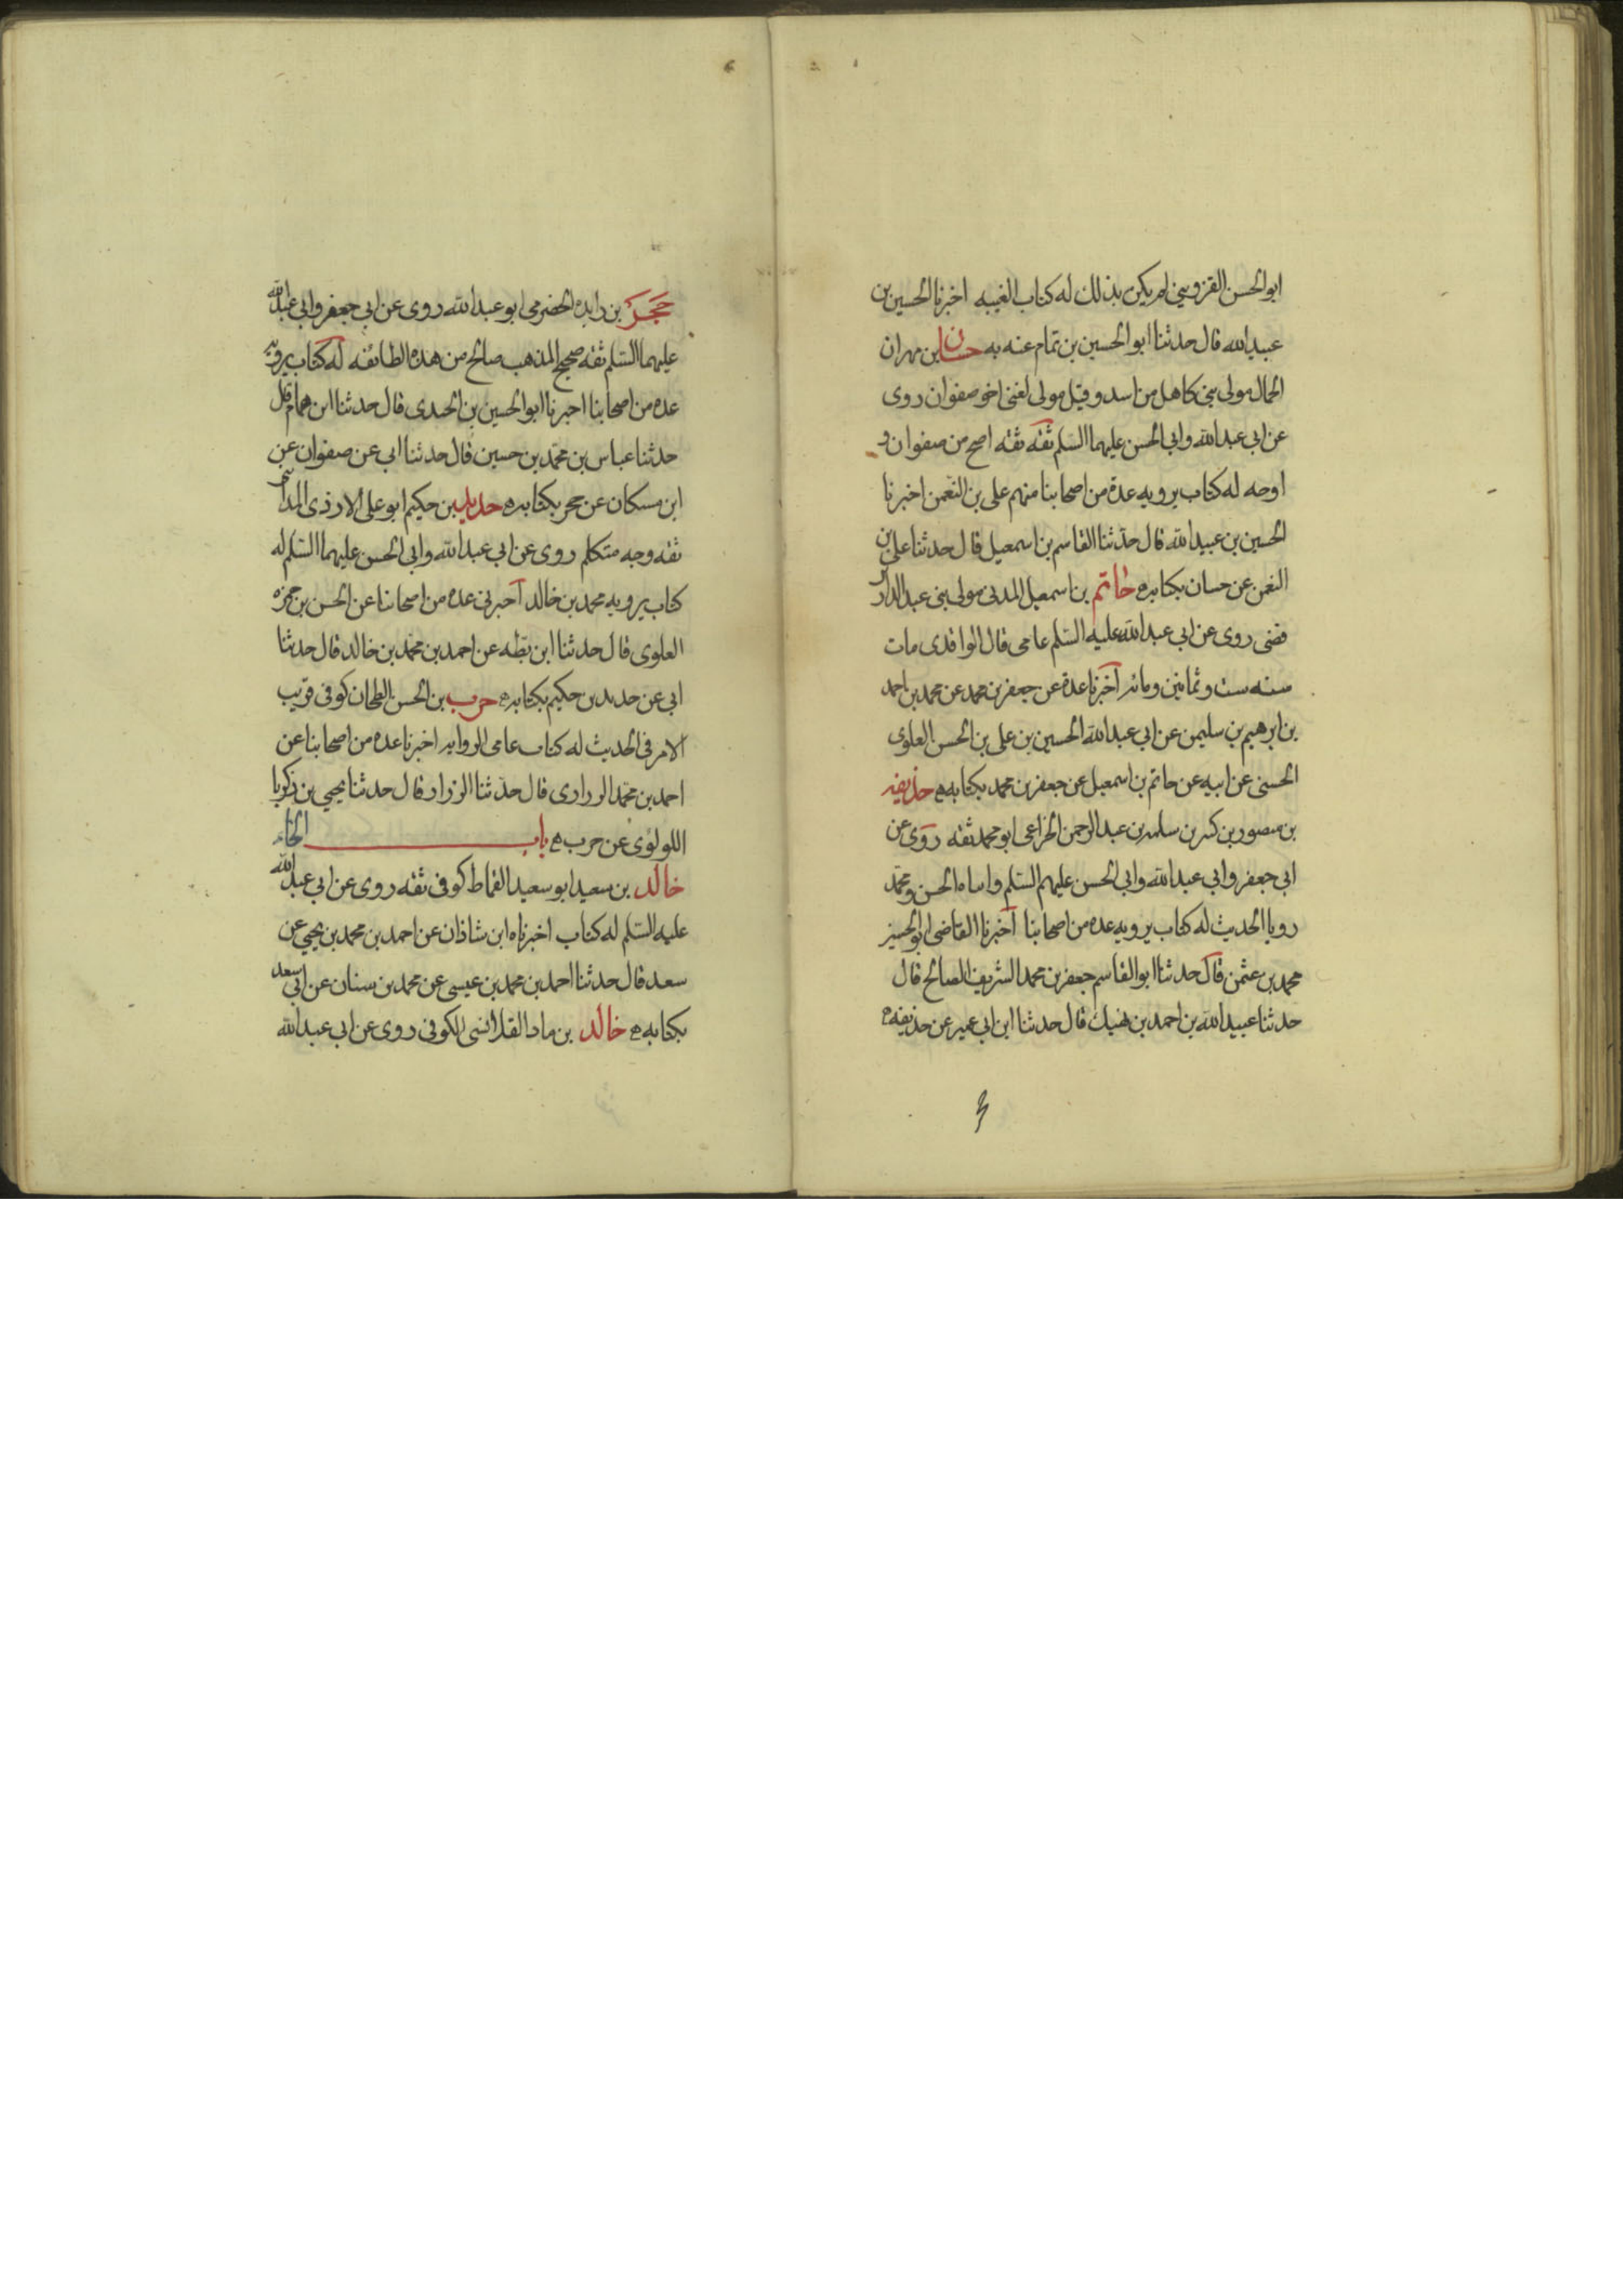 ابو الحسن القزويني لم يكن بذلك له كتاب الغيبه اخبرنا الحسين بن
عبيدالله قال حدثنا ابو الحسين بن تمام عنه به حسان بن مهران
الجمال مولى بني كاهل من اسد وقيل مولى لغنى اخو صفوان روى
عن ابي عبدالله وابي الحسن عليهما السلم ثقه ثقه اصح من صفوان و
اوجه له كتاب يرويه عدة من اصحابنا منهم على بن النعمن اخبرنا
الحسين بن عبيدالله قال حدثنا القاسم بن اسمعيل قال حدثنا على بن
النعمن عن حسان بكتابه ه حاتم بن اسمعيل المدنى مولى بنى عبدالدار
قضى روى عن ابي عبدالله عليه السلم عامى قال الواقدى مات
سنه ست وثمانين ومائه اخبرنا عدة عن جعفر بن محمد عن محمد بن احمد
بن ابرهيم بن سليمن عن ابي عبدالله الحسين بن على بن الحسن العلوى
الحسنى عن ابيه عن حاتم بن اسمعيل عن جعفر بن محمد بكتابه ه حذيفه
بن منصور بن كثير بن سلمه بن عبدالرحمن الخزاعى ابو محمد ثقه روى عن
ابي جعفر وابي عبدالله وابي الحسن عليهم السلم وابناه الحسن ومحمد
رويا الحديث له كتاب يرويه عده من اصحابنا اخبرنا القاضى ابو الحسين
محمد بن عثمن قال حدثنا ابو القاسم جعفر بن محمد الشريف الصالح قال
حدثنا عبيدالله بن احمد بن نهيك قال حدثنا ابن ابي عمير عن حذيفه ه
حجر بن زايده الحضرمى ابو عبدالله روى عن ابي جعفر وابي عبدالله
عليهما السلم ثقه صحيح المذهب صالح من هذه الطائفه له كتاب يرويه
عده من اصحابنا اخبرنا ابو الحسين بن الجندى قال حدثنا ابن همام قال
حدثنا عباس بن محمد بن حسين قال حدثنا ابى عن صفوان عن
ابن مسكان عن حجر بكتابه ه حديد بن حكيم ابو على الازدى المدائنى
ثقه وجه متكلم روى عن ابي عبدالله وابي الحسن عليهما السلم له
كتاب يرويه محمد بن خالد اخبرنى عده من اصحابنا عن الحسن بن حمزه
العلوى قال حدثنا ابن بطه عن احمد بن محمد بن خالد قال حدثنا
ابى عن حديد بن حكيم بكتابه ه حرب بن الحسن الطحان كوفى قريب
الامر فى الحديث له كتاب عامى الروايه اخبرنا عده من اصحابنا عن
احمد بن محمد الزرارى قال حدثنا الرزاز قال حدثنا يحيى بن زكريا
اللولؤى عن حرب ه باب الخاء
خالد بن سعيد ابو سعيد القماط كوفى ثقه روى عن ابي عبدالله
عليه السلم له كتاب اخبرناه ابن شاذان عن احمد بن محمد بن يحيى عن
سعد قال حدثنا احمد بن محمد بن عيسى عن محمد بن سنان عن ابي سعيد
بكتابه ه خالد بن ماد القلانسى الكوفى روى عن ابي عبدالله